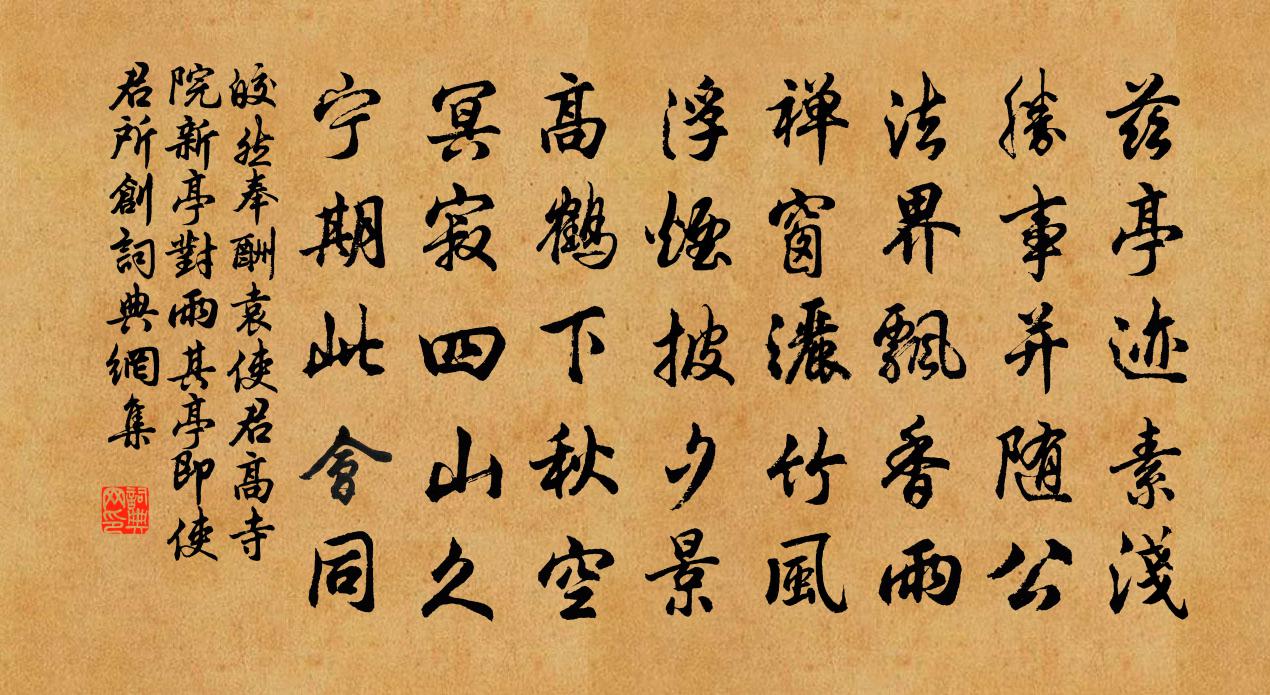 兹亭迹素淺
勝事并随公
法界飄香雨
禅窗灑竹風
浮煙披夕景
高鶴下秋空
冥寂四山久
宁期此會同
皎然奉酬袁使君高寺
院新亭對雨其亭即使
君所創詞典網集
詞典
网印